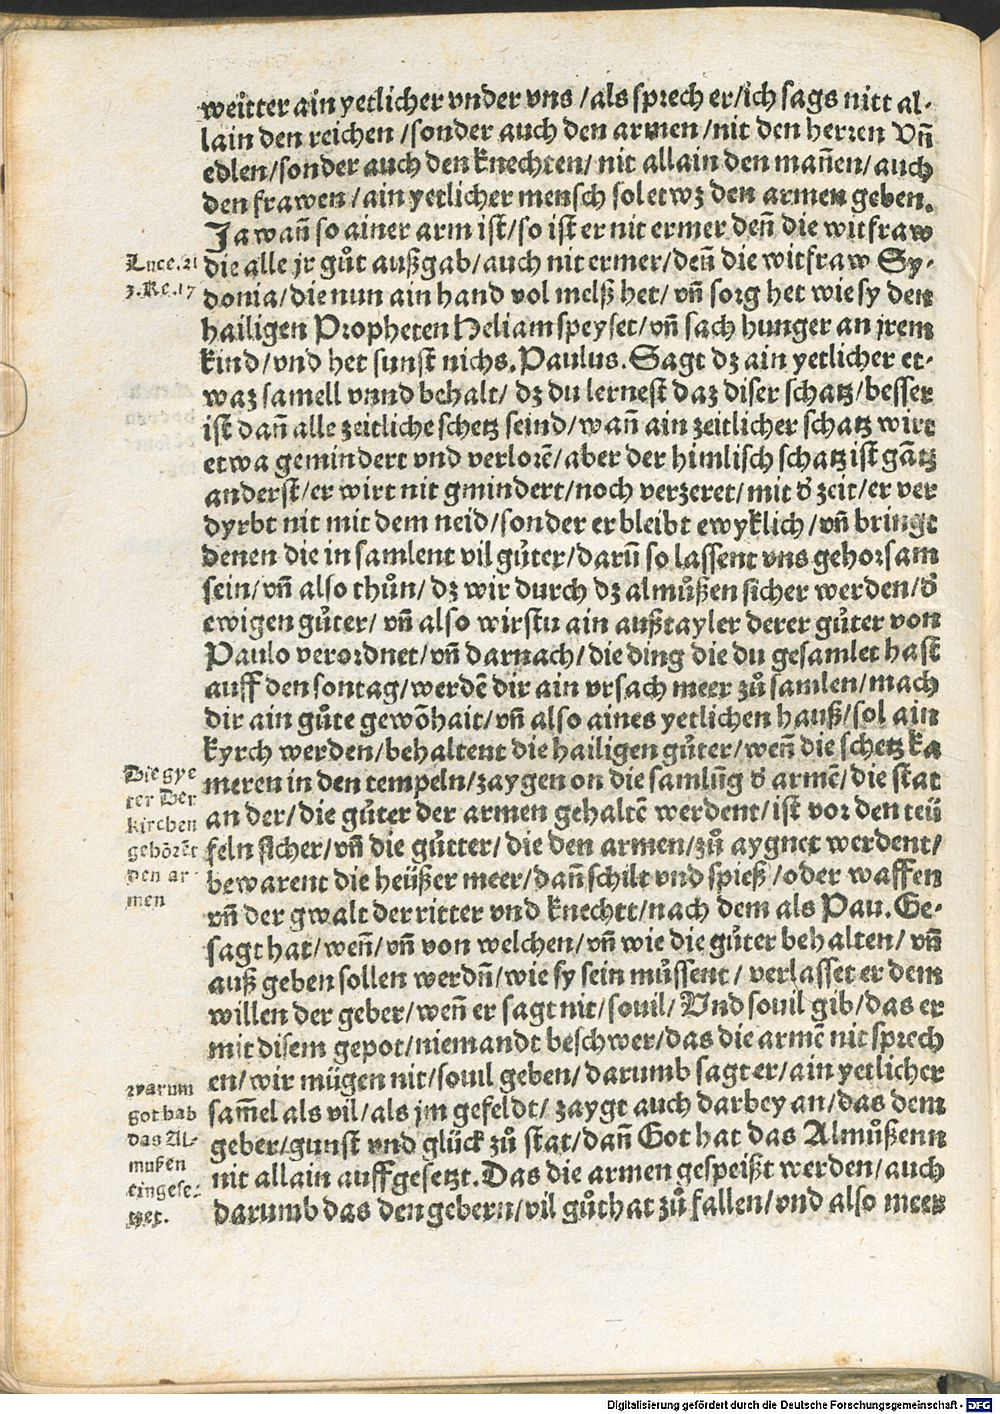 weitter ain yetlicher vnder vns /als sprech er/ich sags nitt al-
lain den reichen /sonder auch den armen /nit den herren Vñ
edlen/sonder auch den knechten/ nit allain den mañen/ auch
den frawen /ain yetlicher mensch sol etwz den armen geben.
Ja wañ so ainer arm ist/so ist er nit ermer deñ die witfraw
Luce.21
die alle jr gůt außgab/auch nit ermer/deñ die witfraw Sy-
3.Re.17
donia/die nun ain hand vol melß het/ vñ sorg het wie sy den
hailigen Propheten Heliam speyset/vñ sach hunger an jrem
kind/vnd het sunst nichs. Paulus. Sagt dz ain yetlicher et-
waz samell vnnd behalt/ dz du lernest daz diser schatz/besser
ist dañ alle zeitliche schetz seind/wañ ain zeitlicher schatz wirt
etwa gemindert vnd verlorē/aber der himlisch schatz ist gātz
anderst/er wirt nit gmindert/noch verzeret/mit d̕ zeit/er ver
dyrbt nit mit dem neid/sonder er bleibt ewyklich/vñ bringt
denen die in samlent vil gůter/darũ so lassent vns gehorsam
sein/vñ also thůn/ dz wir durch dz almůßen sicher werden/d̕
ewigen gůter/ vñ also wirstu ain außtayler derer gůter von
Paulo verordnet/vñ darnach/die ding die du gesamlet hast
auff den sontag/werdē dir ain vrsach meer zů samlen/mach
dir ain gůte gewōhait/vñ also aines yetlichen hauß/sol ain
kyrch werden/behaltent die hailigen gůter/weñ die schetz ka
Die gye
meren in den tempeln/zaygen on die samlũg d̕ armē/die stat
ter Der
an der/die gůter der armen gehaltē werdent/ist vor den teü
kirchen
feln sicher/vñ die gůtter/ die den armen/zů aygnet werdent/
gehōrēt
bewarent die heüßer meer/dañ schilt vnd spieß/oder waffen
den ar-
vñ der gwalt der ritter vnd knechtt/nach dem als Pau. Ge-
men
sagt hat/weñ/vñ von welchen/vñ wie die gůter behalten/ vñ
auß geben sollen werdñ/wie sy sein můssent/ verlasset er dem
willen der geber/weñ er sagt nit/souil/ Vnd souil gib/das er
mit disem gepot/niemandt beschwer/das die armē nit sprech
en/wir mügen nit/souil geben/darumb sagt er/ain yetlicher
warum
sam̃el als vil/als jm gefeldt/ zaygt auch darbey an/das dem
got hab
geber/gunst vnd glück zů stat/dañ Got hat das Almůßenn
das Al-
nit allain auffgesetzt. Das die armen gespeißt werden/auch
mußen
darumb das den gebern/vil gůt hat zů fallen/vnd also meer
eingese-
tzet.
Digitalisierung gefördert durch die Deutsche Forschungsgemeinschaft - DFG